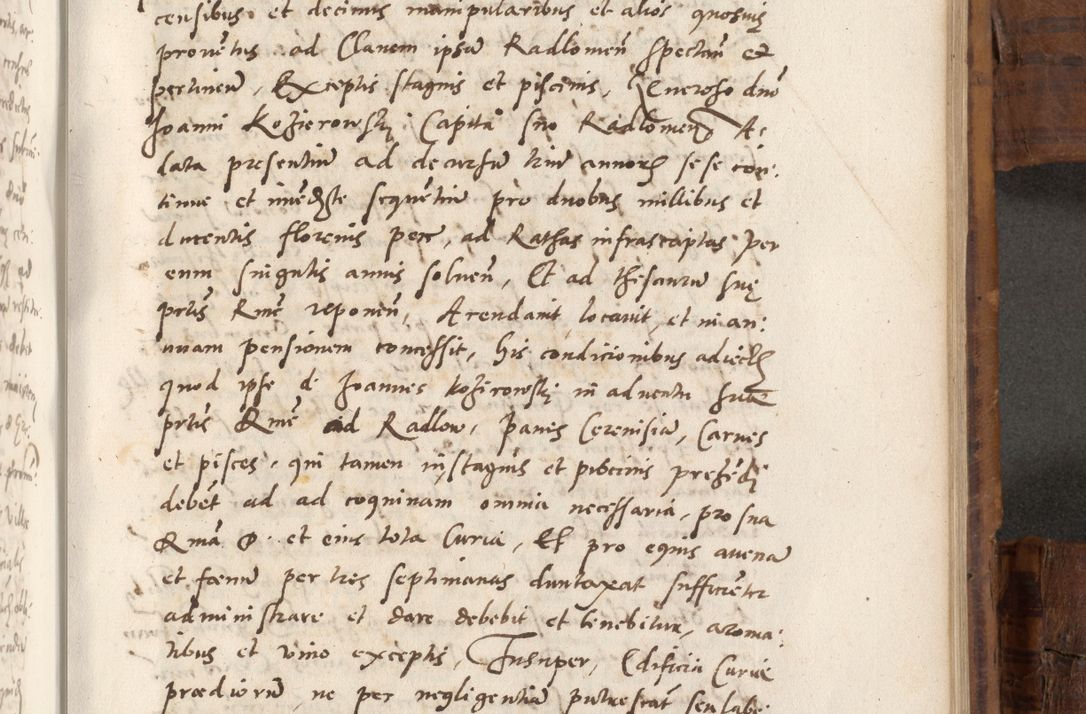 censibus et decimis manipularibus et alios quosuis
prouẽtus ad Clauem ipsã Radlomeñ spectañ et
pertineñ, Exceptis stagnis et piscinis, Generoso dno
Joanni Kozierowski Capitã sño Radlomeñ A
data presentiũ ad decursũ triũ annorũ sese con:
tinue et imẽdiãte sequẽtiũ pro duobus millibus et
ducentis florenis pece, ad Rathas infrascriptas per
eum singulis annis soluen̄, Et ad thesaurũ suę
prtis Rmę reponen̄, Arendauit, locauit, et in an:
nuam pensionem concessit, his condicionibus adiectis
quod ipse d: Joannes Kozirowski in aduentu suae
prtis Rmę ad Radlow, Panes Cerenisiã, Carnes
et pisces, qui tamen in stagnis et piscinis prehẽdi
debẽt ad ad coquinam omnia necessaria, pro sua
Rma P. et eius tota Curia, Et pro equis auenã
et fœnũ per tres septimanas duntaxat sufficiẽter
administrare et dare debebit et tenebitur, aroma:
tibus et vino exceptis, Insuper, Edificia Curie
prædiorũ, ne per negligentiã putrescãt seu labe